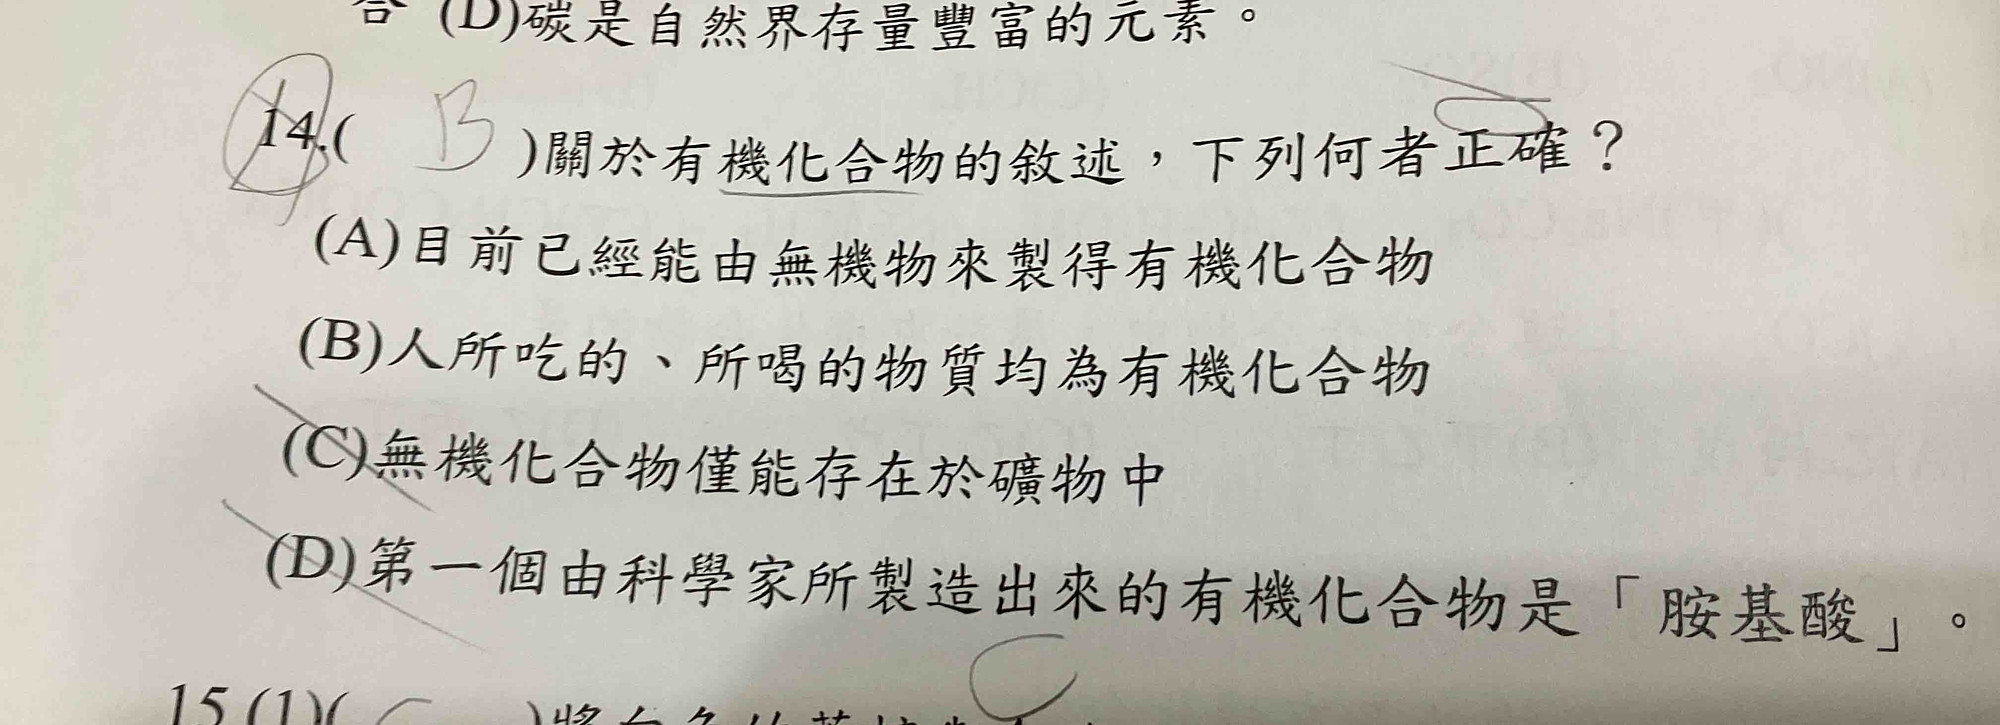 (D)碳是自然界存量豐富的元素。
14.( B )關於有機化合物的敘述，下列何者正確？
(A)目前已經能由無機物來製得有機化合物
(B)人所吃的、所喝的物質均為有機化合物
(C)無機化合物僅能存在於礦物中
(D)第一個由科學家所製造出來的有機化合物是「胺基酸」。
C
15.(1)( )將白色的